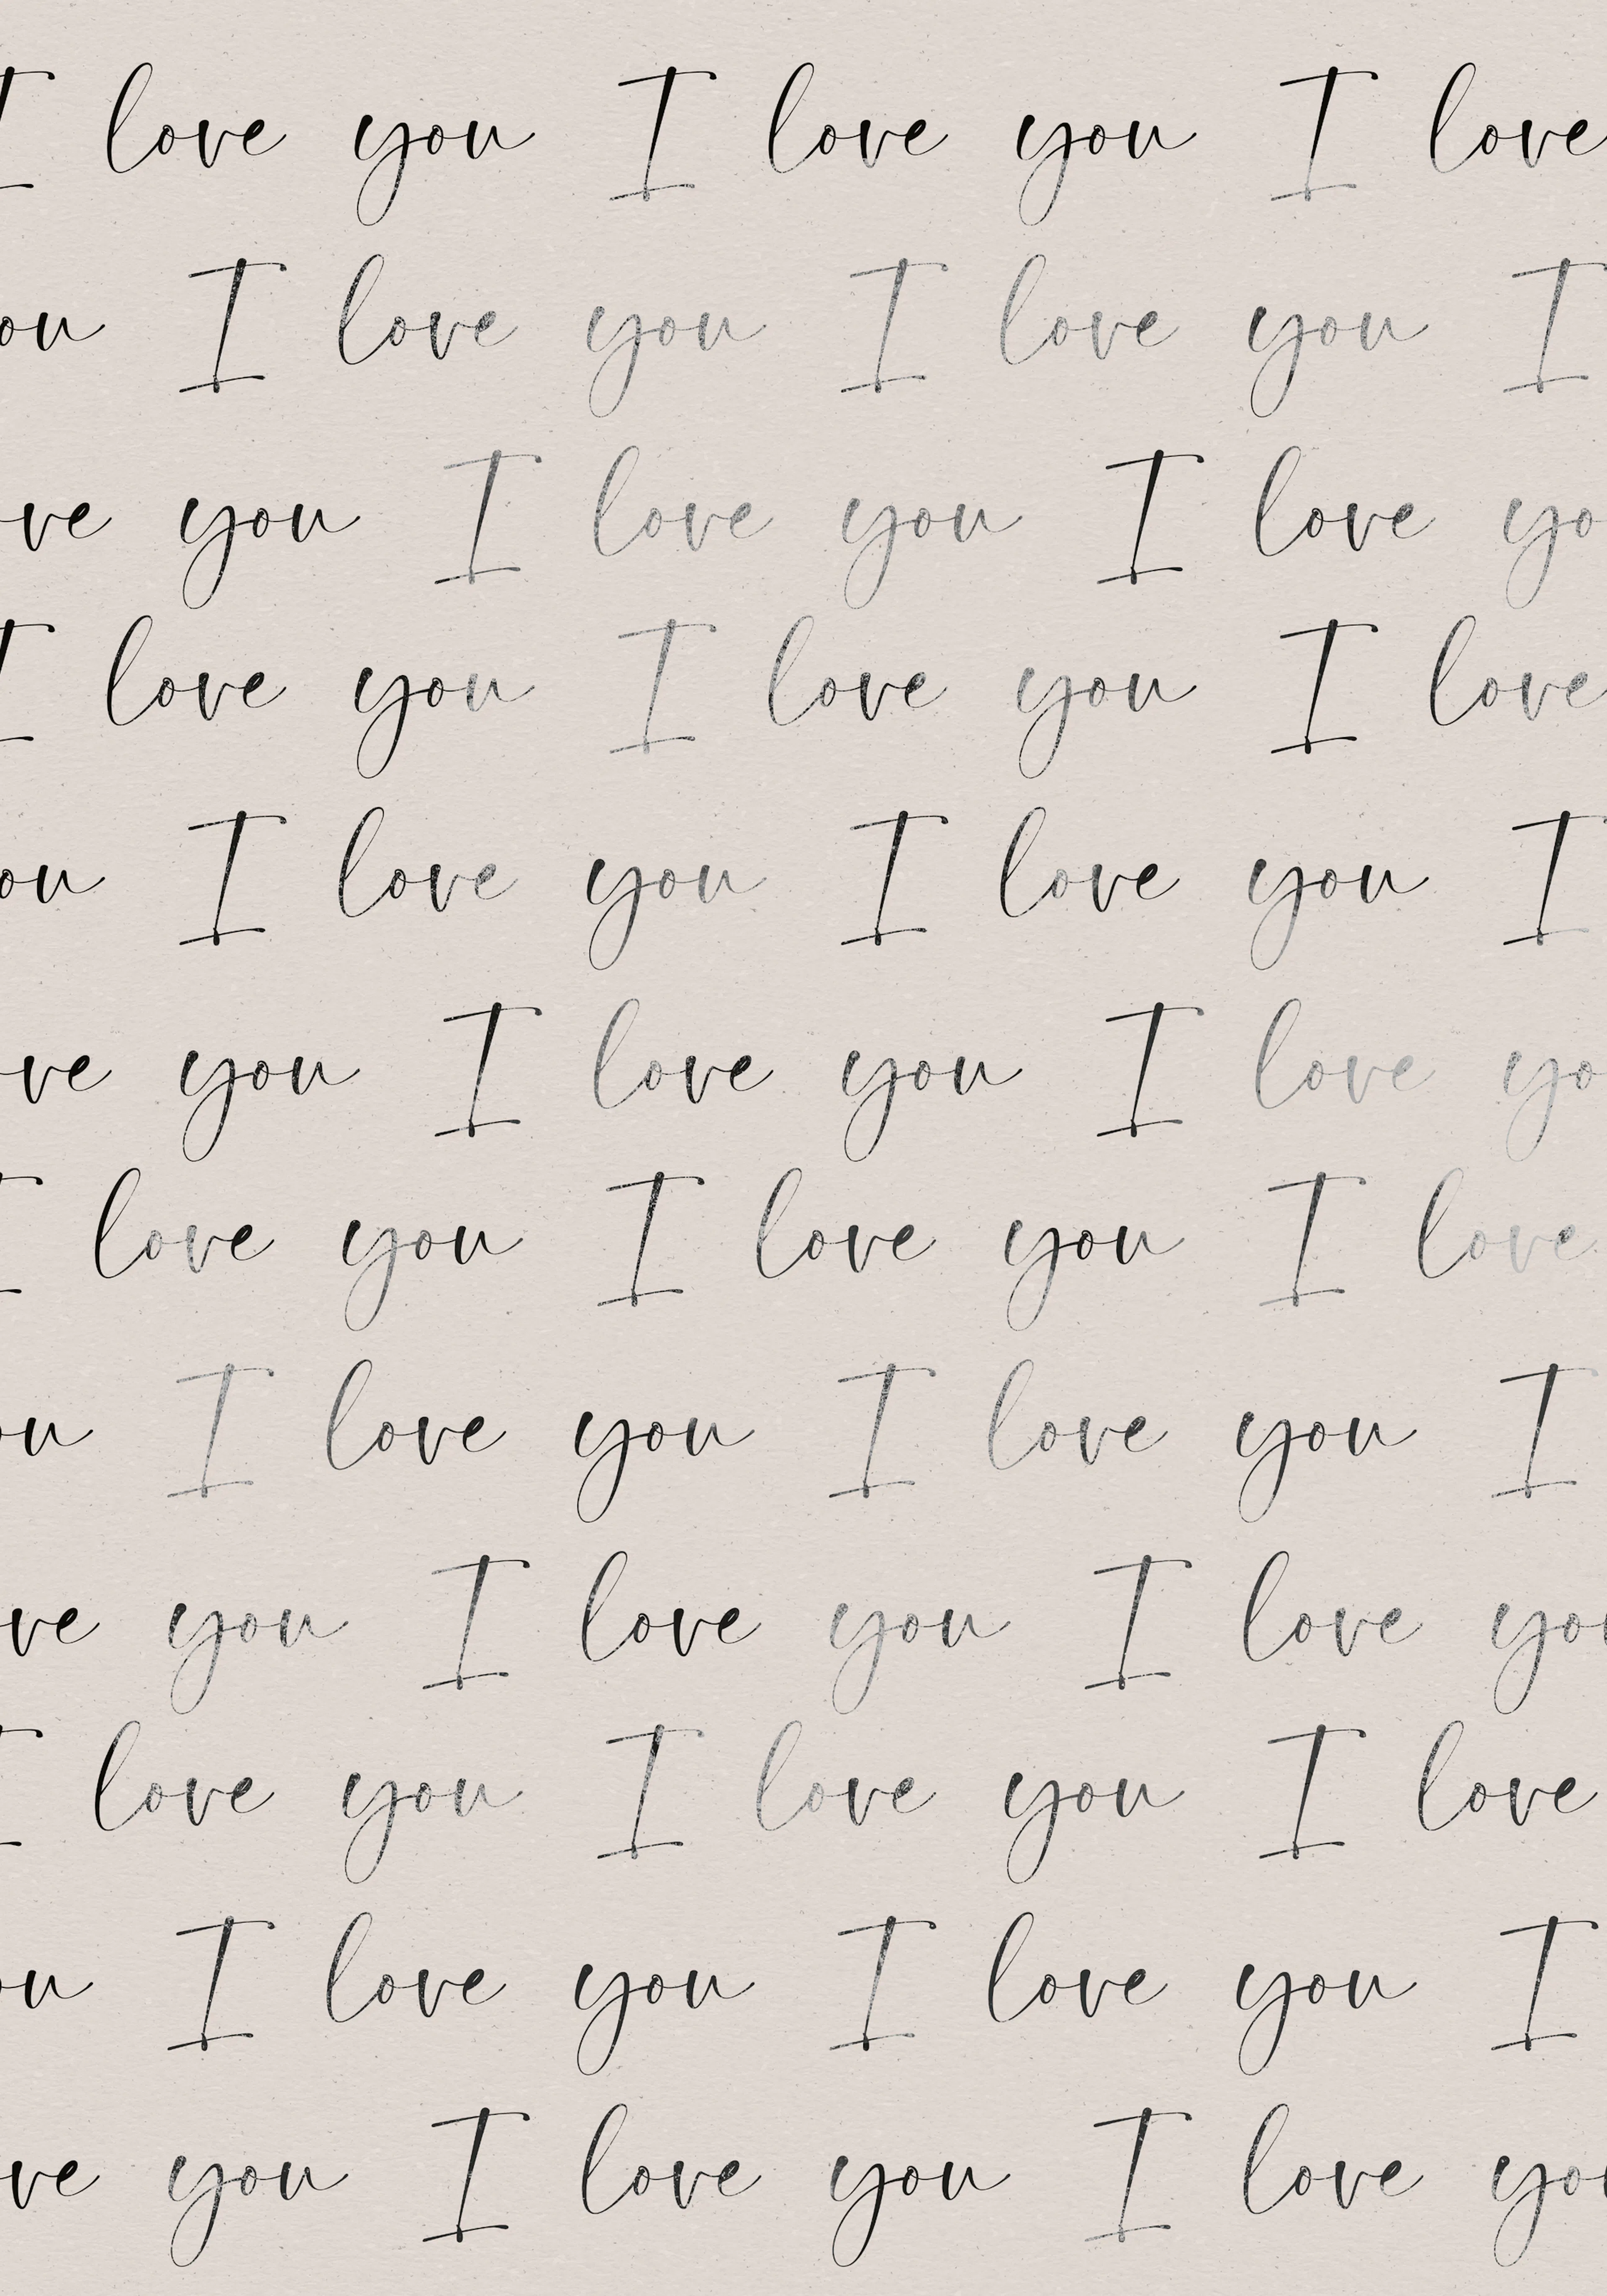 I love you I love you I love
ou I love you I love you I
ve you I love you I love yo
I love you I love you I love
ou I love you I love you I
ve you I love you I love yo
I love you I love you I love
ou I love you I love you I
ve you I love you I love you
I love you I love you I love
ou I love you I love you I
ve you I love you I love you